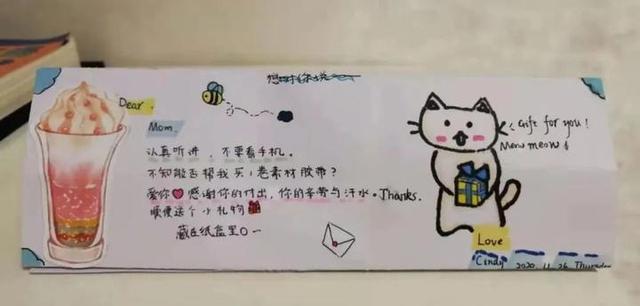 想对你说
Dear
Mom.
认真听讲，不要看手机。
不知能否帮我买1卷素材胶带？
爱你 感谢你的付出，你的辛劳与汗水。Thanks.
顺便送个小礼物
藏在纸盒里
Gift for you!
Meow meow
Love
Cindy 2020 11 26 Thursday